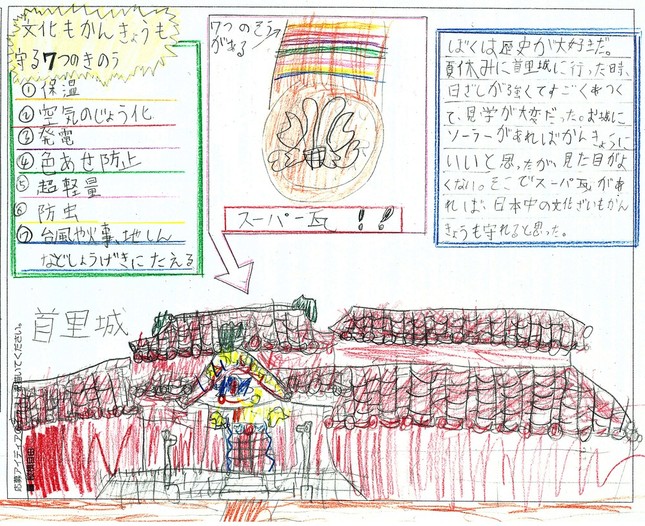 文化もかんきょうも
守る7つのきのう
① 保温
② 空気のじょう化
③ 発電
④ 色あせ防止
⑤ 超軽量
⑥ 防虫
⑦ 台風や火事、地しん
などしょうげきにたえる
7つのそう
がある
スーパー瓦!!
ぼくは歴史が大好きだ。
夏休みに首里城に行った時、
日ざしが強くてすごくあつく
て、見学が大変だった。お城に
ソーラーがあればかんきょうに
いいと思ったが、見た目がよ
くない。そこで「スーパー瓦」があ
れば、日本中の文化ざいもかん
きょうも守れると思った。
首里城